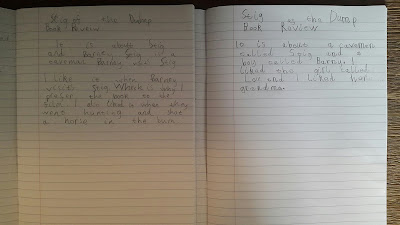 Stig of the Dump
Book Review
It is about Stig
and Barney. Stig is a
caveman Barney
I like it when Barney
visits Stig. Which is why I
prefer the book to the
film. I also liked it when they
went hunting and shot
a horse in the bum.
Stig of the Dump
Book Review
It is about a caveman
called Stig and a
boy called Barney. I
liked the girl called
Lou and I liked her
grandma.